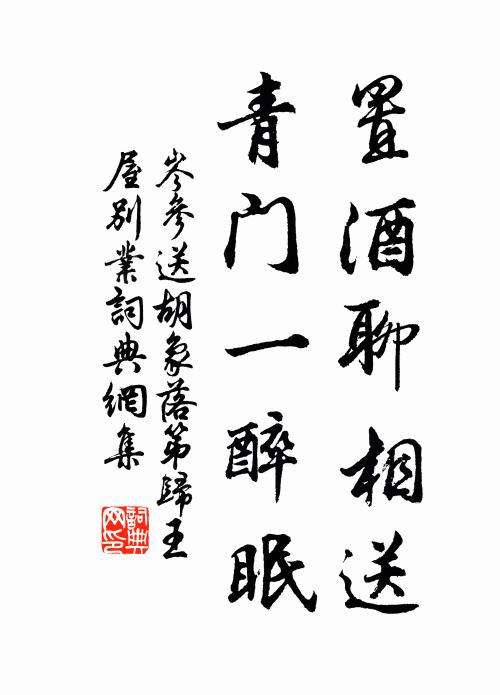 置酒聊相送
青门一醉眠
岑參送胡象落第歸王
屋别業詞典網集
詞典
网印